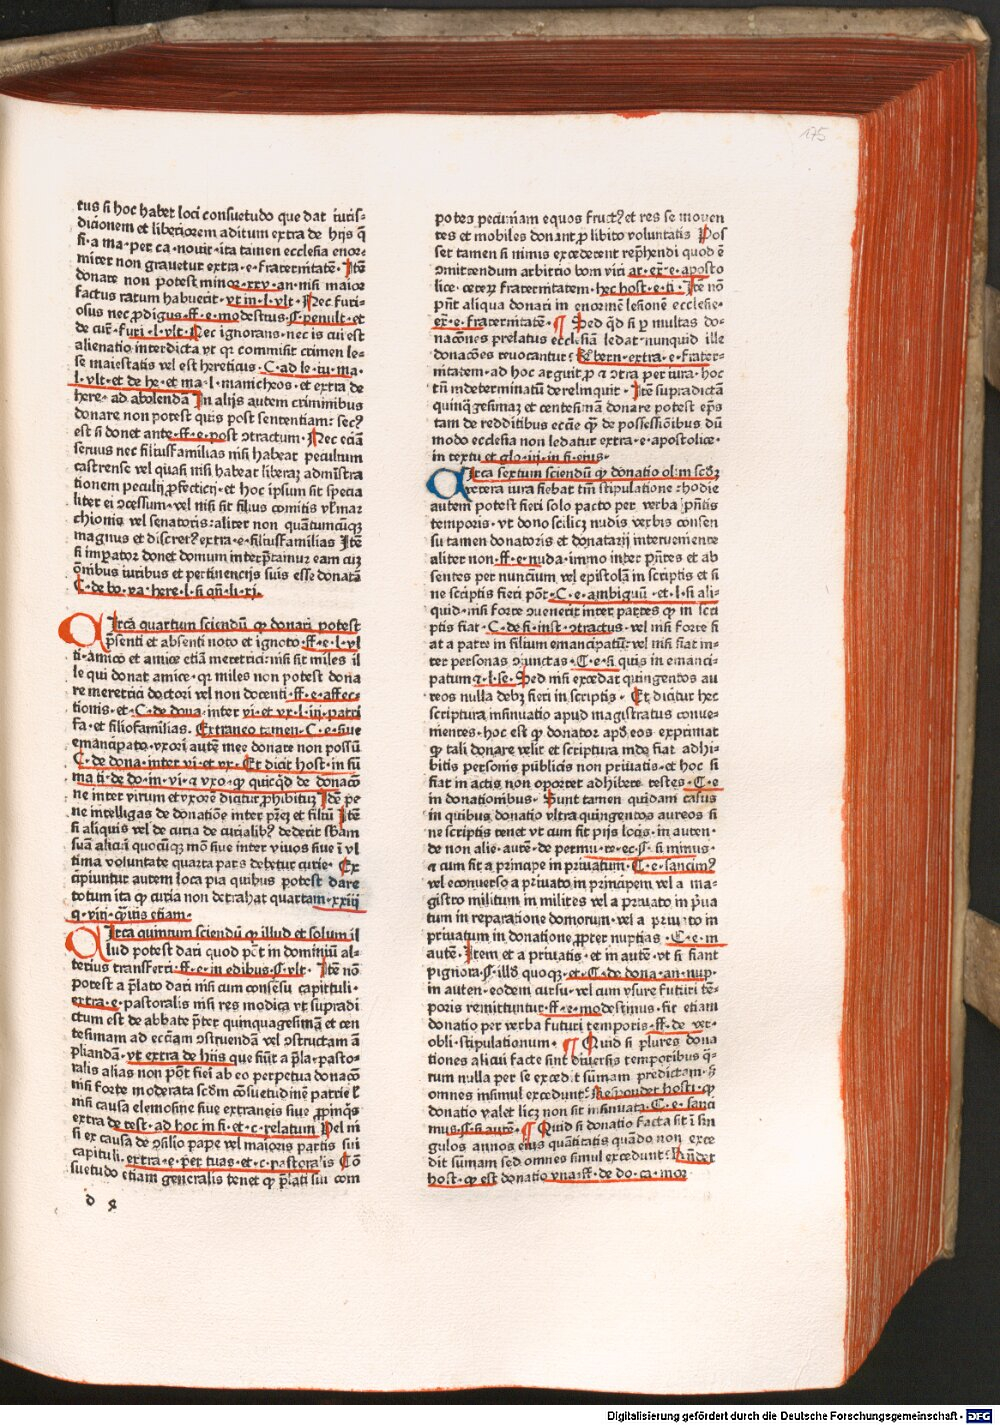 175
tus si hoc habet loci consuetudo que dat iuris-
dicionem et liberiorem aditum extra de hijs q̄
fi·a ma·per ca·nouit·ita tamen ecclesia enor-
miter non grauetur extra·e·fraternitatē· Itē
donare non potest minor·xxv·an·nisi maior
factus ratum habuerit·vt in·l·vlt· Nec furi-
osus nec ꝓdigus·ff·e·modestus·§·penult·et
de cur̄·furi·l·vlt· Nec ignorans·nec is cui est
alienatio interdicta vt qͥ commisit crimen le-
se maiestatis vel est hereticus·C·ad le·iu·ma·
l·vlt·et de he·et ma·l·manicheos·et extra de
here·ad abolendā In alijs autem criminibus
donare non potest quis post sententiam: sec⁹
est si donet ante·ff·e·post ↄtractum· Nec eciā
seruus nec filiusfamilias nisi habeat peculium
castrense vel quasi nisi habeat liberaꝫ admīstra
tionem peculij ꝓfecticij·et hoc ipsum sit specia
liter ei ↄcessum·vel nisi sit filius comitis vl̓ mar
chionis vel senatoris: aliter non quātumcūqꝫ
magnus et discret⁹ extra·e·filiusfamilias Itē
si imperator donet domum interp̄tamur eam cuꝫ
om̄ibus iuribus et pertinencijs suis esse donatā
C·de bo·va·here·l·si qn̄·li·xi·
Irca quartum sciendū ꝙ donari potest
p̄senti et absenti noto et ignoto·ff·e·l·vl
ti·amico et amice etiā meretrici: nisi sit miles il
le qui donat amice·qꝛ miles non potest dona
re meretrici doctori vel non docenti·ff·e·affec-
tionis·et·C·de dona·inter vi·et vx·l·iij·patri
fa·et filiofamilias. Extraneo tamen·C·e·siue
emancipato·vxori autē mee donare non possū
C·de dona·inter vi·et vx· Et dicit host·in sū
ma ti·de do·in·vi·⁊ vxo·ꝙ quicq̄d de donacō
ne inter virum et vxorē dicitur ꝓhibituꝫ Idē pe
ne intelligas de donatiōe inter pr̄eꝫ et filiū Itē
si aliquis vel de curia de curialibꝫ dederit sb̄am
suā alicui quocūqꝫ mō siue inter viuos siue ī vl
tima voluntate quarta pars debetur curie· Ex
cipiuntur autem loca pia quibus potest dare
totum ita ꝙ curia non detrahat quartam·xxiij
q·viij·q̄uis etiam·
Irca quintum sciendū ꝙ illud et solum il
lud potest dari quod pōt in dominiū al-
terius transferri·ff·e·in edibus·§·vlt· Itē nō
potest a p̄lato dari nisi cum consēsu capituli·
extra·e·pastoralis nisi res modica vt supradi
ctum est de abbate p̄ter quinquagesimā et cen
tesimam ad eccl̄iam ↄstruendā vel ↄstructam ā
pliandā·vt extra de hiis que fiūt a p̄la·pasto-
ralis alias non pōt fieri ab eo perpetua donacō
nisi forte moderata scd̄m cōsuetudinē patrie l̓
nisi causa elemosine siue extraneis siue ꝓpinqͥs
extra de test·ad hoc in fi·et·c·relatum Vel ni
si ex causa de ↄsilio pape vel maioris partis sui
capituli. extra·e·per tuas·et·c·pastoralis Cō
suetudo etiam generalis tenet ꝙ p̄lati sui com
d ꝝ
potes pecuniam equos fruct⁹ et res se mouen
tes et mobiles donant ꝓ libito voluntatis Pos
set tamen si nimis excederent rep̄hendi quod ē
ↄmittendum arbitrio boni viri ar·ex̄·e·aposto
lice·ceterꝫ fraternitatem·hec host·e·ti· Itē nō
pn̄t aliqua donari in enormē lesionē ecclesie·
ex̄·e·fraternitatē· ¶ Sed qͥd si ꝑ multas do-
nacōnes prelatus ecclesiā ledat·nunquid ille
donacōes reuocantur: R̄ bern·extra·e·frater-
nitatem·ad hoc arguit ꝓ ⁊ ↄtra per iura·hoc
tn̄ indeterminatū derelinquit· Itē supradictā
quinq̄gesimaꝫ et centesimā donare potest ep̄s
tam de redditibus eccīe q̄ de possessiōibus dū
modo ecclesia non ledatur extra·e·apostolice·
in textu et glo·iij·in fi·eius·
Irca sextum sciendū ꝙ donatio olim scd̄ꝫ
vetera iura fiebat tm̄ stipulatione: hodie
autem potest fieri solo pacto per verba pn̄tis
temporis·vt dono scilicꝫ nudis verbis consen
su tamen donatoris et donatarij interueniente
aliter non·ff·e·nuda·immo inter pn̄tes et ab
sentes per nuncium vel epistolā in scriptis et si
ne scriptis fieri pōt·C·e·ambiguū·et·l·si ali-
quid·nisi forte ↄuenerit inter partes ꝙ in scri
ptis fiat·C·de fi·inst·ↄtractus·vel nisi forte fi
at a patre in filium emancipatū: vel nisi fiat in-
ter personas ↄiunctas·C·e·si quis in emanci-
patum ⁊·l·se· Sed nisi excedat quingentos au
reos nulla debꝫ fieri in scriptis· Et dicitur hec
scriptura insinuatio apud magistratus conue-
nientes·hoc est ꝙ donator apd̓ eos exprimat
ꝙ tali donare velit et scriptura inde fiat adhi-
bitis personis publicis non priuatis·et hoc si
fiat in actis non oportet adhibere testes·C·e
in donationibus· Sunt tamen quidam casus
in quibus donatio vltra quingentos aureos si
ne scriptis tenet vt cum fit pijs locis·in auten·
de non alie·autē·de permu·re·ec·§·si minus·
⁊ cum fit a principe in priuatum·C·e·sancim⁹
vel econuerso a priuato in principem vel a ma-
gistro militum in milites vel a priuato in p̄ua
tum in reparatione domorum·vel a priuato in
priuatum in donatione ꝓpter nuptias·C·e·in
autē· Item et a priuatis·et in autē·vt si fiant
pignora·§·illd̓ quoqꝫ·et·C·de dona·an·nup·
in auten·eodem cursu·vel cum vsure futuri tē-
poris remittuntur·ff·e·modestimus·fit etiam
donatio per verba futuri temporis·ff·de ver·
obli·stipulationum· ¶ Quid si plures dona
tiones alicui facte sint diuersis temporibus q̄-
rum nulla per se excedit sūmam predictam·s̓
omnes insimul excedunt: Respondet hosti·ꝙ
donatio valet licꝫ non sit insinuata·C·e·sanci
mus·§·si autē· ¶ Quid si donatio facta sit ī sin
gulos annos eius quātitatis quādo non exce
dit sūmam sed omnes simul excedunt: R̄ndet
host·ꝙ est donatio vna·ff·de do·ca·mor
Digitalisierung gefördert durch die Deutsche Forschungsgemeinschaft - DFG